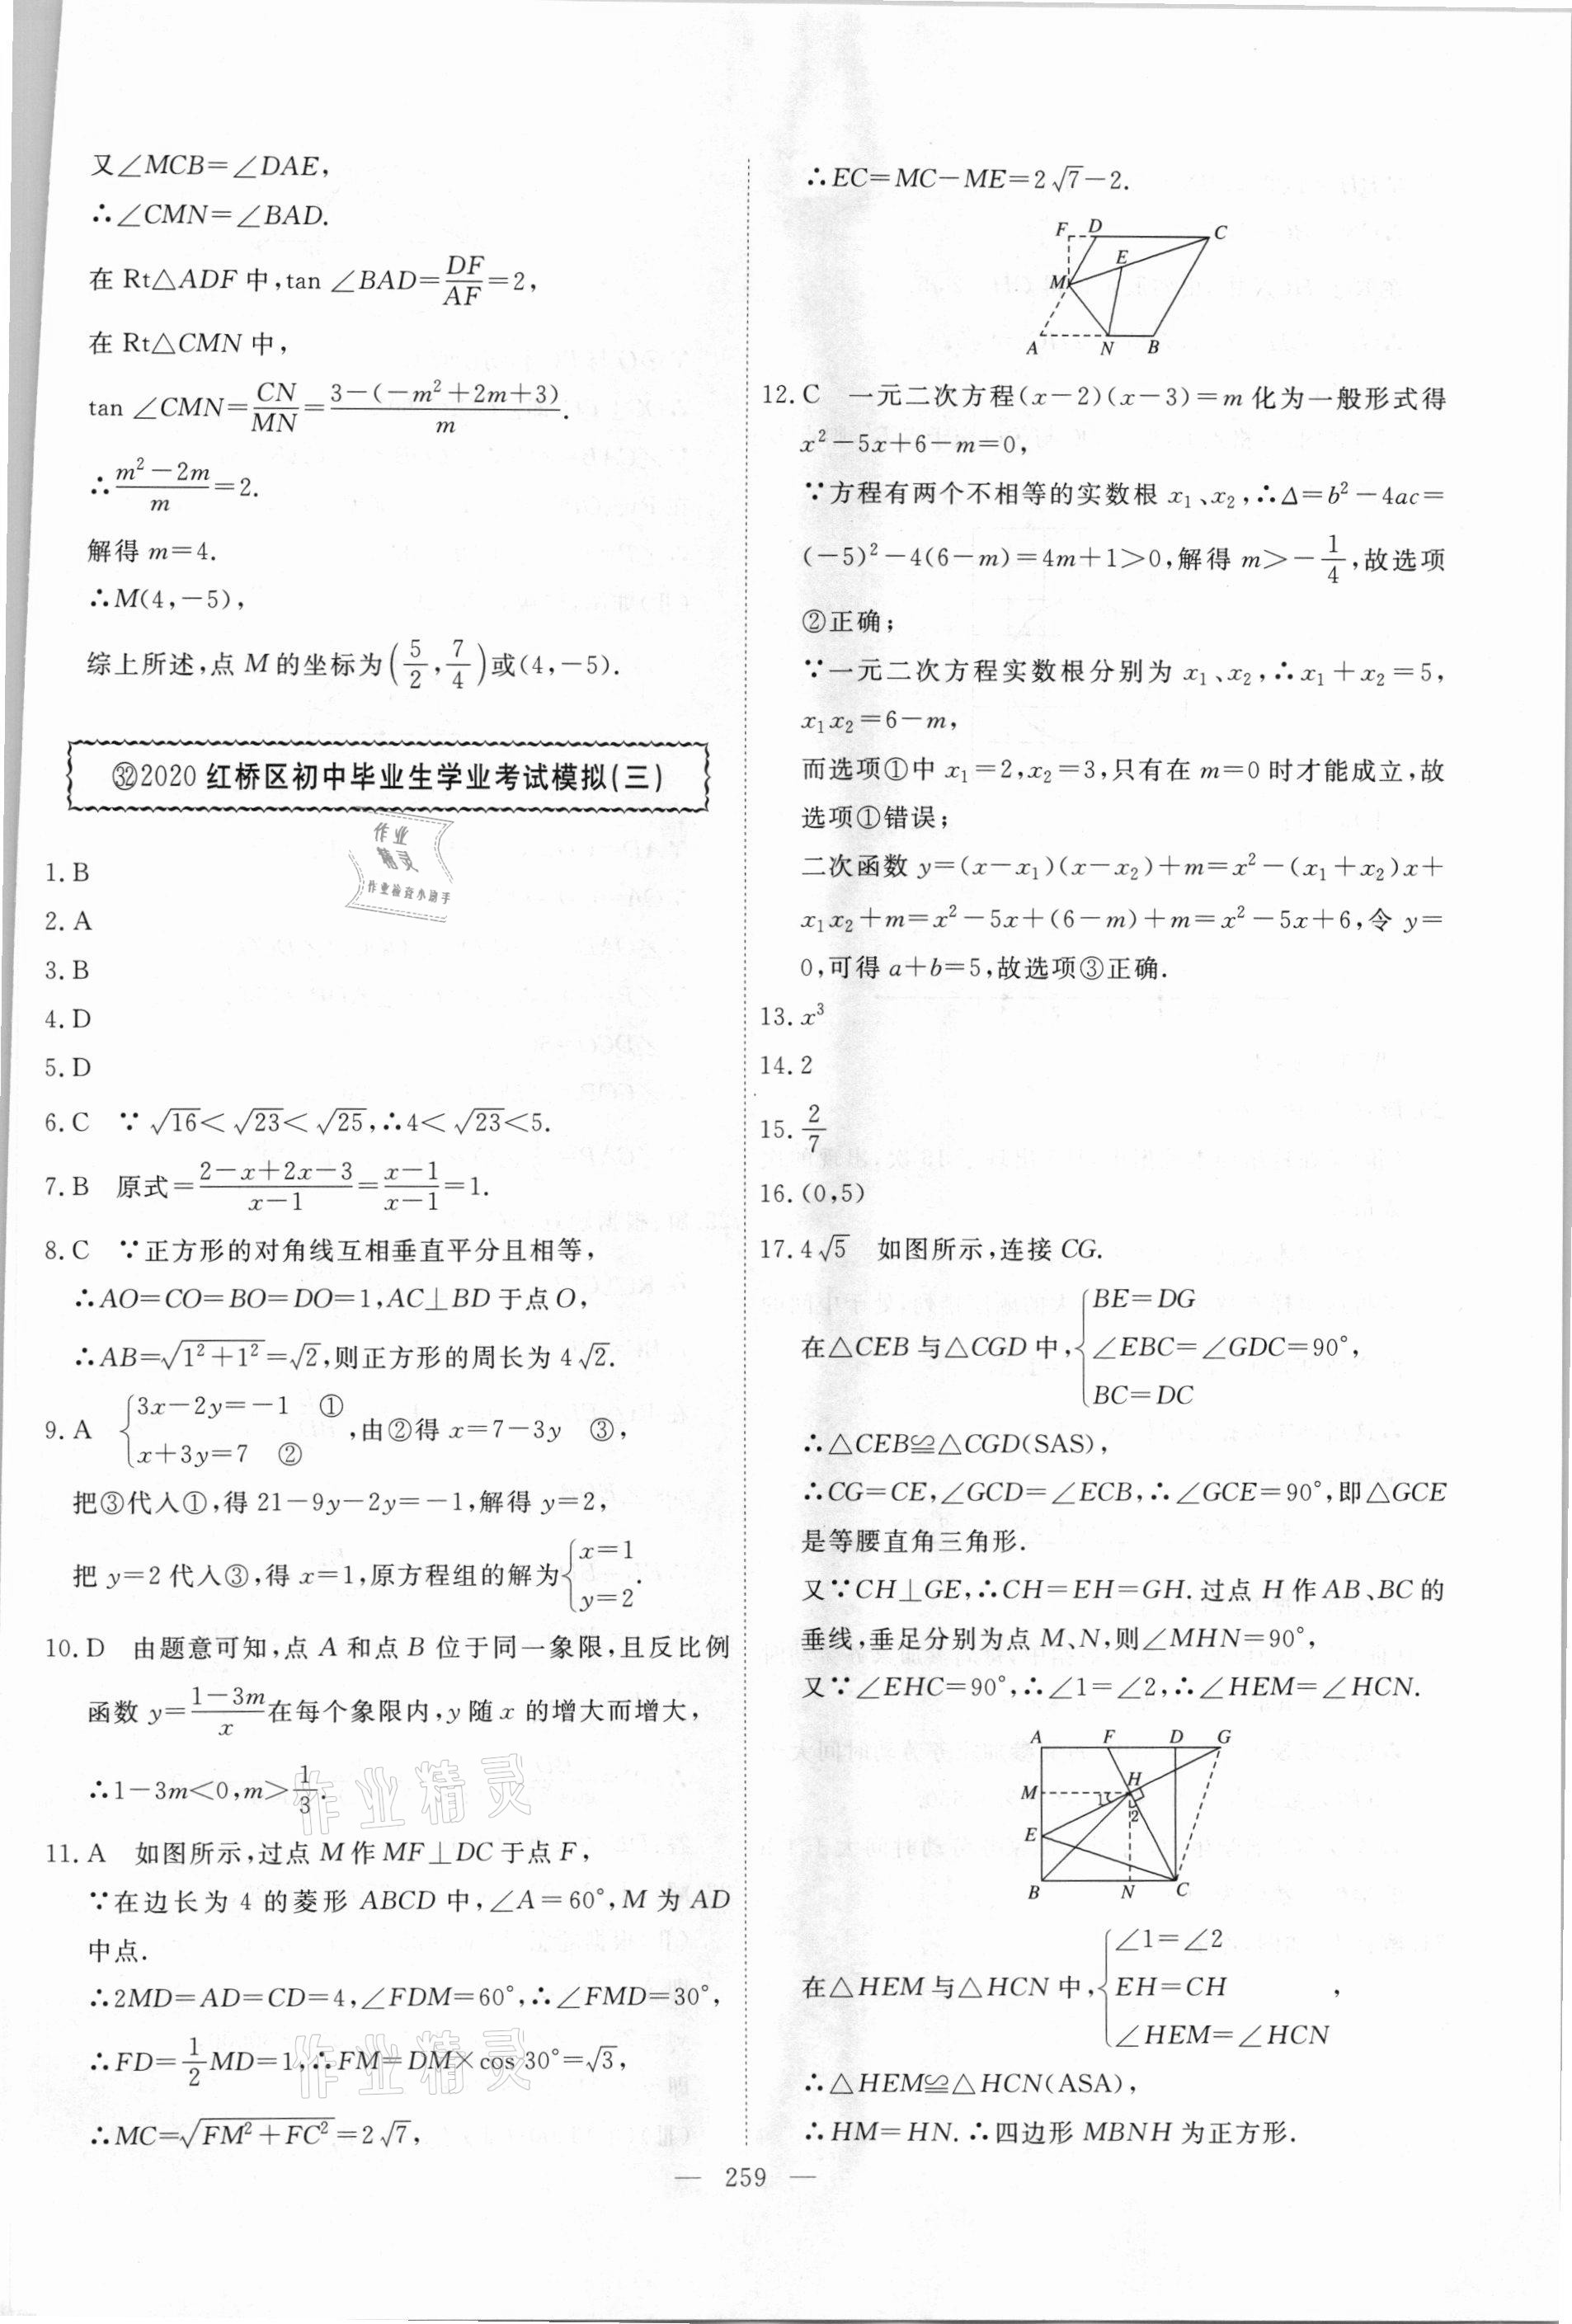 又∠MCB=∠DAE,
∴∠CMN=∠BAD.
在 Rt△ADF 中,tan ∠BAD=DF/AF=2,
在 Rt△CMN 中,
tan ∠CMN=CN/MN=(3-(-m²+2m+3))/m.
∴(m²-2m)/m=2.
解得 m=4.
∴M(4,-5),
综上所述,点 M 的坐标为(5/2,7/4)或(4,-5).
㉜2020 红桥区初中毕业生学业考试模拟(三)
作业
精灵
作业检查小助手
1. B
2. A
3. B
4. D
5. D
6. C ∵√16<√23<√25,∴4<√23<5.
7. B 原式=(2-x+2x-3)/(x-1)=(x-1)/(x-1)=1.
8. C ∵正方形的对角线互相垂直平分且相等,
∴AO=CO=BO=DO=1,AC⊥BD 于点 O,
∴AB=√(1²+1²)=√2,则正方形的周长为 4√2.
9. A {3x-2y=-1 ① x+3y=7 ②,由②得 x=7-3y ③,
把③代入①,得 21-9y-2y=-1,解得 y=2,
把 y=2 代入③,得 x=1,原方程组的解为{x=1 y=2.
10. D 由题意可知,点 A 和点 B 位于同一象限,且反比例
函数 y=(1-3m)/x在每个象限内,y 随 x 的增大而增大,
∴1-3m<0,m>1/3.
作业精灵
11. A 如图所示,过点 M 作 MF⊥DC 于点 F,
∵在边长为 4 的菱形 ABCD 中,∠A=60°,M 为 AD
中点.
∴2MD=AD=CD=4,∠FDM=60°,∴∠FMD=30°,
∴FD=1/2MD=1,∴FM=DM×cos 30°=√3,
作业精灵
∴MC=√(FM²+FC²)=2√7,
∴EC=MC-ME=2√7-2.
F D C
E
M
A N B
12. C 一元二次方程(x-2)(x-3)=m 化为一般形式得
x²-5x+6-m=0,
∵方程有两个不相等的实数根 x₁、x₂,∴Δ=b²-4ac=
(-5)²-4(6-m)=4m+1>0,解得 m>-1/4,故选项
②正确;
∵一元二次方程实数根分别为 x₁、x₂,∴x₁+x₂=5,
x₁x₂=6-m,
而选项①中 x₁=2,x₂=3,只有在 m=0 时才能成立,故
选项①错误;
二次函数 y=(x-x₁)(x-x₂)+m=x²-(x₁+x₂)x+
x₁x₂+m=x²-5x+(6-m)+m=x²-5x+6,令 y=
0,可得 a+b=5,故选项③正确.
13. x³
14. 2
15. 2/7
16. (0,5)
17. 4√5 如图所示,连接 CG.
在△CEB 与△CGD 中,{BE=DG ∠EBC=∠GDC=90°, BC=DC
∴△CEB≌△CGD(SAS),
∴CG=CE,∠GCD=∠ECB,∴∠GCE=90°,即△GCE
是等腰直角三角形.
又∵CH⊥GE,∴CH=EH=GH. 过点 H 作 AB、BC 的
垂线,垂足分别为点 M、N,则∠MHN=90°,
又∵∠EHC=90°,∴∠1=∠2,∴∠HEM=∠HCN.
A F D G
H
M 1
2
E
B N C
在△HEM 与△HCN 中,{∠1=∠2 EH=CH ∠HEM=∠HCN,
∴△HEM≌△HCN(ASA),
∴HM=HN. ∴四边形 MBNH 为正方形.
— 259 —